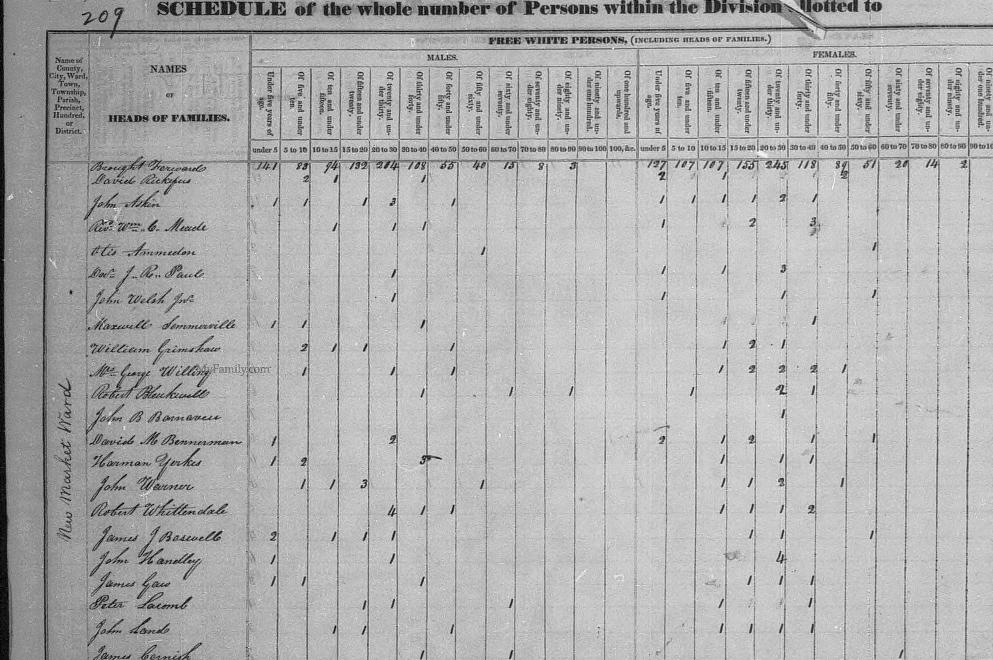 209
SCHEDULE of the whole number of Persons within the Division allotted to
FREE WHITE PERSONS, (INCLUDING HEADS OF FAMILIES.)
MALES. FEMALES.
Name of County, City, Ward, Town, Township, Parish, Precinct, Hundred, or District.
NAMES
OF
HEADS OF FAMILIES.
Under five years of age. Of five and under ten. Of ten and under fifteen. Of fifteen and under twenty. Of twenty and under thirty. Of thirty and under forty. Of forty and under fifty. Of fifty and under sixty. Of sixty and under seventy. Of seventy and under eighty. Of eighty and under ninety. Of ninety and under one hundred. Of one hundred and upwards.
Under five years of age. Of five and under ten. Of ten and under fifteen. Of fifteen and under twenty. Of twenty and under thirty. Of thirty and under forty. Of forty and under fifty. Of fifty and under sixty. Of sixty and under seventy. Of seventy and under eighty. Of eighty and under ninety. Of ninety and under one hundred.
under 5 5 to 10 10 to 15 15 to 20 20 to 30 30 to 40 40 to 50 50 to 60 60 to 70 70 to 80 80 to 90 90 to 100 100, &c. under 5 5 to 10 10 to 15 15 to 20 20 to 30 30 to 40 40 to 50 50 to 60 60 to 70 70 to 80 80 to 90 90 to 10
Brought Forward 141 83 94 132 204 108 55 40 15 8 3 127 107 107 155 245 118 89 51 20 14 2
David 2 1 1 2 1 2
John Askin 1 1 1 3 1 1 1 1 1 2 1
Revd. Wm. C. Meade 1 1 1 1 2 3
Otis Ammedon 1 1
J. R. Paul 1 1 1 3
John Welsh Jr. 1 1 1 1
Maxwell Sommerville 1 1 1 1
William Grimshaw 2 1 1 1 1 2 1
Mrs George Willing 1 1 1 1 2 2 2 1
MyFamily.com
Robert 1 1 1 1 2 1
John B 1
David M Bennerman 1 2 2 1 2 1 1
Harman Yerkes 1 2 3 1 1 1
John Warner 1 1 3 1 1 1 2 1
Robert Whittendale 4 1 1 1 1 1 2
James J Basewell 2 1 1 1 1 1 1
John Handley 1 1 4
James Gaw 1 1 1 1 1 1
Peter Lacomb 1 1 1 1 1
John Land 1 1 1 1 1 1 1
James Cornish 1 1 1
New Market Ward